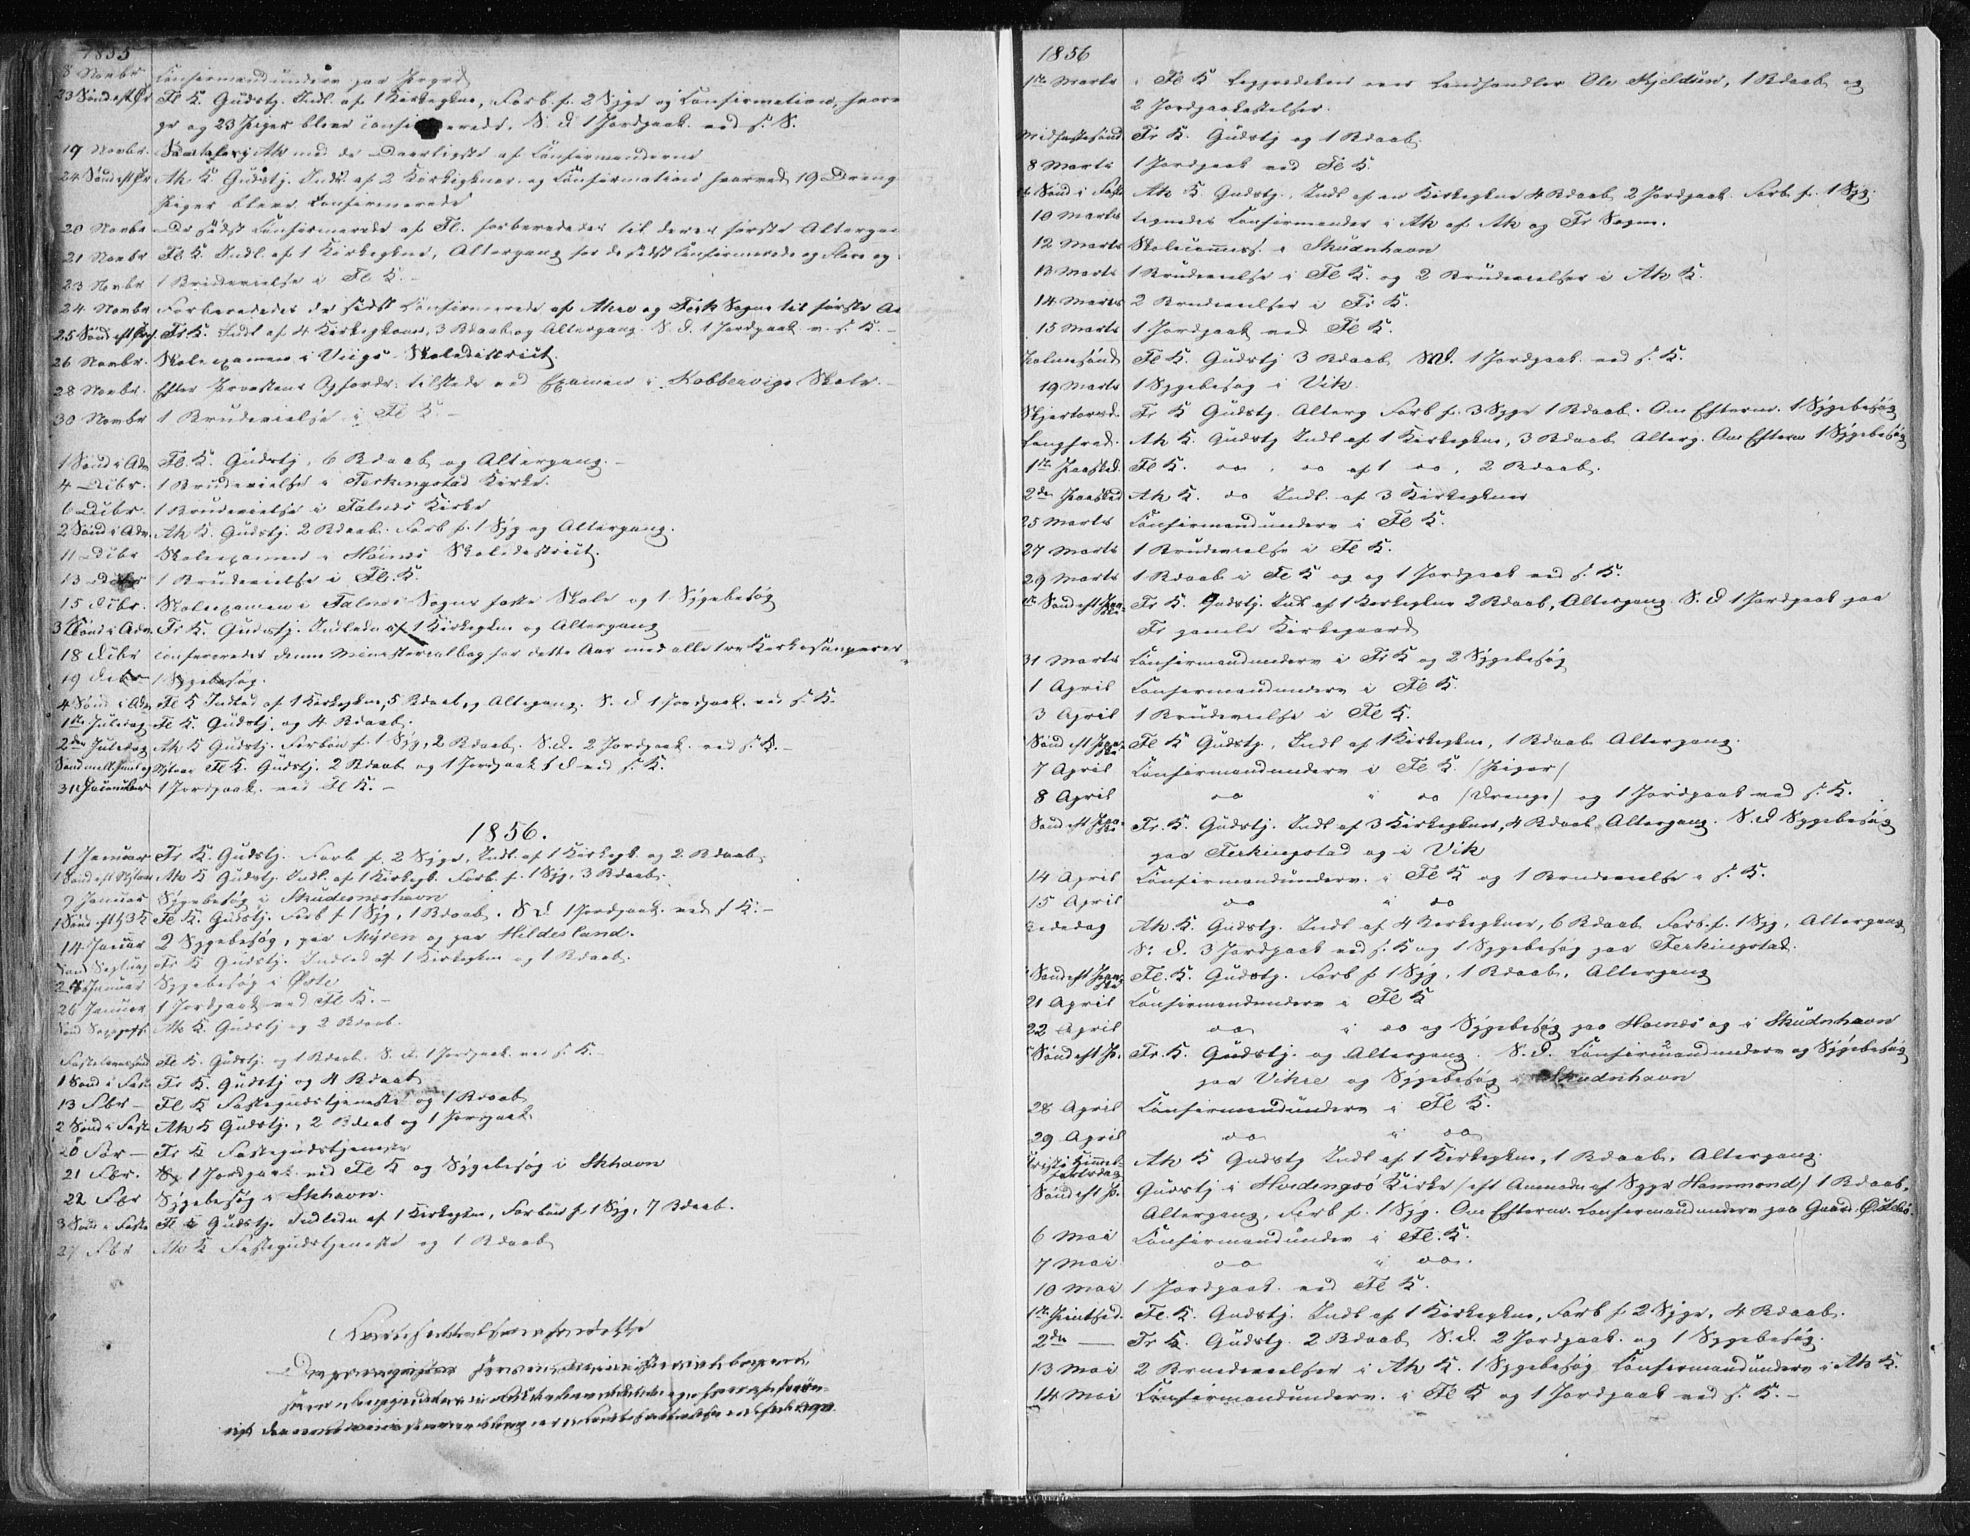 1855
8 Novbr Confirmandunderv paa
23 Sønd eft Tr Fl K. Gudstj. Indl. af 1 Kirkegkne, Forb. f. 2 Syge og Confirmation, hvor
ge og 23 Piger bleve confirmerede. S. d 1 Jordpaak. ved s. K.
19 Novbr. med de Daarligste af Confirmanderne
24 Sønd eft Tr Ak K. Gudstj. Indl. af 2 Kirkegkner og Confirmation hvorved 19 Dreng
Piger bleve Confirmerede
20 Novbr De sidst Confirmerede af Fl. forberededes til deres første Altergan
21 Novbr Fl K. Indl. af 1 Kirkegkne, Altergang for de sidst Confirmerede og Flere og
23 Novbr 1 Brudevielse i Fl K. –
24 Novbr Forberededes de sidst Confirmerede af Akre og Ferk Sogne til første Al
25 Sønd eft Tr. Fr K. Indl af 4 Kirkegkoner, 3 Bdaab og Altergang. S. d. 1 Jordpaak v. s. K. –
26 Novbr. Skoleexamen i Viigs Skoledistrict.
28 Novbr. Efter Provstens Opfordr. tilstede ved Examen i Kobbervigs Skole. –
30 Novbr 1 Brudevielse i Fl K. –
1 Sønd i Adv Fl. K. Gudstj, 6 Bdaab og Altergang. –
4 Dcbr. 1 Brudevielse i Ferkingstad Kirke.
6 Dcbr. 1 Brudevielse i Falnes Kirke
2 Sønd i Adv. Ak K. Gudstj. 2 Bdaab. Forb f. 1 Syg og Altergang.
11 Dcbr Skoleexamen i Høines Skoledistrict.
13 Dcbr 1 Brudevielse i Fl. K.
15 Dcbr. Skoleexamen i Falnes Sogns faste Skole og 1 Sygebesøg
3 Sønd i Adv. Fr K. Gudstj. Indledn af 1 Kirkegkne og Altergang
18 Dcbr confereredes denne Ministerialbog for dette Aar med alle tre Kirkesangeres
19 Dcbr 1 Sygebesøg.
4 Sønd i Adv Fl K Indled af 1 Kirkegkne, 5 Bdaab, og Altergang. S. d 1 Jordpaak. ved s. K.
1ste Juledag Fl K. Gudstj. og 4 Bdaab.
2den Juledag Ak K Gudstj. Forbøn f. 1 Syg, 2 Bdaab. S. d. 2 Jordpaak. ved s. K. –
Sønd mell Juul og Nytaar Fl K. Gudstj. 2 Bdaab og 1 Jordpaak s d ved s. K.
31 December 1 Jordpaak. ved Fl K. –
1856.
1 Januar Fr K. Gudstj. Forb f. 2 Syge, Indl. af 1 Kirkegk. og 2 Bdaab.
Sønd eft Nytaar Ak K Gudstj. Indl. af 1 Kirkegk. Forb. f. 1 Syg, 3 Bdaab.
9 Januar Sygebesøg i Skudesneshavn
1 Sønd eft H 3 K Fl K. Gudstj. Forb f 1 Syg, 1 Bdaab. S d 1 Jordpaak. ved s K. –
14 Januar 2 Sygebesøg, paa Myren og paa Hildesland.
Sønd Septuag Fr K Gudstj. Indled af 1 Kirkegkne og 1 Bdaab.
24 Januar Sygebesøg i
26 Januar 1 Jordpaak ved Fl K. –
Sønd Ak K. Gudstj og 2 Bdaab.
Fastelavnssønd Fl K. Gudstj. og 1 Bdaab. S. d. 1 Jordpaak. ved s. K. –
1 Sønd i Fast Fr K. Gudstj og 4 Bdaab
13 Fbr – Fl K Fastegudstjeneste og 1 Bdaab
2 Sønd i Faste Ak K Gudstj., 2 Bdaab og 1 Jordpaak
20 Fbr – Fr K Fastegudstjeneste
21 Fbr. 1 Jordpaak. ved Fl K og Sygebesøg i Skhavn
22 Fbr Sygebesøg i Skhavn.
3 Sønd i Faste Fl K Gudstj. Indledn af 1 Kirkegkne, Forbøn f. 1 Syg, 7 Bdaab.
27 Fbr Ak K Fastegudstjeneste og 1 Bdaab
1856
1ste Marts i Fl K over Landhandler Ole Kjeldsen, 1 Bdaab og
2 Jordpaakastelser.
Midfastesønd. Fr K. Gudstj og 1 Bdaab.
8 Marts 1 Jordpaak ved Fl K.
Sønd i Fast Ak K. Gudstj., Indl af en Kirkegkne 4 Bdaab 2 Jordpaak. Forb f. 1 Syg.
10 Marts tegnedes Confirmander i Ak af Ak og Fr Sogne.
12 Marts Skolecommiss. i Skudnhavn
13 Marts 1 Brudevielse i Fl K. og 2 Brudevielser i Ak K.
14 Marts 2 Brudevielser i Fr K.
15 Marts 1 Jordpaak ved Fl K.
Palmesønd Fl K. Gudstj 3 Bdaab S. d. 1 Jordpaak. ved s. K.
19 Marts 1 Sygebesøg i Vik.
Skjertorsd. Fr K Gudstj. Alterg Forb f. 3 Syge 1 Bdaab. Om Efterm. 1 Sygebesøg
Langfred. Ak K. Gudstj Indl af 1 Kirkegkne, 3 Bdaab Alterg. Om Efterm 1 Sygebesøg
1ste Paasked. Fl K. do. do af 1 do, 2 Bdaab.
2den Paasked Ak K. do Indl. af 3 Kirkegkner
25 Marts Confirmandunderv i Fl K.
27 Marts 1 Brudevielse i Fl K.
29 Marts 1 Bdaab i Fl K og og 1 Jordpaak ved s. K.
Sønd eft Paaske Fr K. Gudstj. Indl af 1 Kirkegkne 2 Bdaab, Altergang. S. d 1 Jordpaak paa
Fr gamle Kirkegaard
31 Marts Confirmandunderv i Fr K og 2 Sygebesøg
1 April Confirmandunderv i Fl K.
3 April 1 Brudevielse i Fl K.
Sønd eft Paaske Fl K Gudstj., Indl af 1 Kirkegkne, 1 Bdaab Altergang.
7 April Confirmandunderv i Fl K. /Piger/
8 April do i do /Drenge/ og 1 Jordpaak ved s. K.
Sønd eft Paaske Fr. K. Gudstj. Indl af 3 Kirkegkner, 4 Bdaab Altergang. S. d Sygebesøg
paa Ferkingstad og i Vik
14 April Confirmandunderv. i Fl K og 1 Brudevielse i s. K.
15 April do i do
Bededag Ak. K. Gudstj. Indl af 4 Kirkegkner, 6 Bdaab Forb. f. 1 Syg, Altergang
S. d. 3 Jordpaak ved s. K og 1 Sygebesøg paa Ferkingstad.
Sønd eft Paaske Fl. K. Gudstj. Forb f 1 Syg, 1 Bdaab, Altergang
21 April Confirmandunderv i Fl K
22 April do i do og Sygebesøg paa Høinæs og i Skudnhavn
Sønd eft P. Fr. K. Gudstj. og Altergang. S. d. Confirmandunderv og Sygebesøg
paa Vikre og Sygebesøg i Skudnhavn
28 April Confirmandunderv i Fl K.
29 April do i do
Kristi Himmelfartsdag Ak K Gudstj Indl af 1 Kirkegkne, 1 Bdaab, Altergang.
Sønd eft P. Gudstj i Hvidingsö Kirke /eft Anmodn af Sgpr Hammond/ 1 Bdaab,
Altergang, Forb f. 1 Syg. Om Efterm. Confirmandunderv paa Gaard.
6 Mai Confirmandunderv i Fl. K.
7 Mai do i do.
10 Mai 1 Jordpaak. ved Fl K.
1ste Pintsed. Fl. K. Gudstj. Indl af 1 Kirkegkne, Forb f. 2 Syge, 4 Bdaab.
2den — Fr K. Gudstj. 2 Bdaab S. d. 2 Jordpaak. og 1 Sygebesøg.
13 Mai 2 Brudevielser i Ak K. 1 Sygebesøg Confirmandunderv i Ak K.
14 Mai Confirmandunderv. i Fl K og 1 Jordpaak ved s. K. –